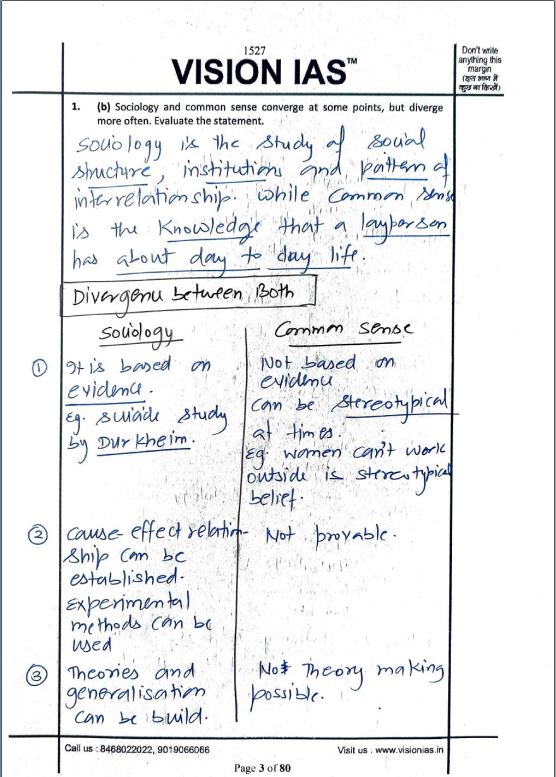 1527
VISION IAS™
Don't write
anything this
margin
(इस भाग में
कुछ ना लिखें)
1. (b) Sociology and common sense converge at some points, but diverge
more often. Evaluate the statement.
Sociology is the study of social
structure, institutions and pattern of
interrelationship. while Common sense
is the Knowledge that a layperson
has about day to day life.
Divergence between Both
Sociology
Common sense
① It is based on
evidence.
Eg. suicide study
by Durkheim.
Not based on
evidence
Can be stereotypical
at times.
Eg. women can't work
outside is stereotypical
belief.
② Cause-effect relation-
ship can be
established.
Experimental
methods can be
used
Not provable.
③ Theories and
generalisation
can be build.
Not Theory making
possible.
Call us : 8468022022, 9019066066
Visit us : www.visionias.in
Page 3 of 80